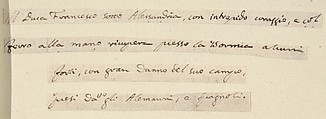 Il Duca Francesco sotto Alessandria, con intrepido coraggio, e col
ferro alla mano ricupera presso la Bormia alcuni
forti, con gran danno del suo campo,
presi da gli Alemanni, e Spagnoli.